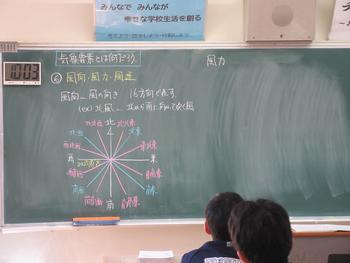 みんなで みんなが
幸せな学校生活を創る
1003
気象要素とは何だろう。
⑥ 風向・風力・風速
風力
風向＿風の向き 16方向で表す
(ex) 北風＿北から南に向かって吹く風
北北西 北 北北東
北西 北東
西北西 東北東
西 東
西南西 東南東
南西 南東
南南西 南 南南東